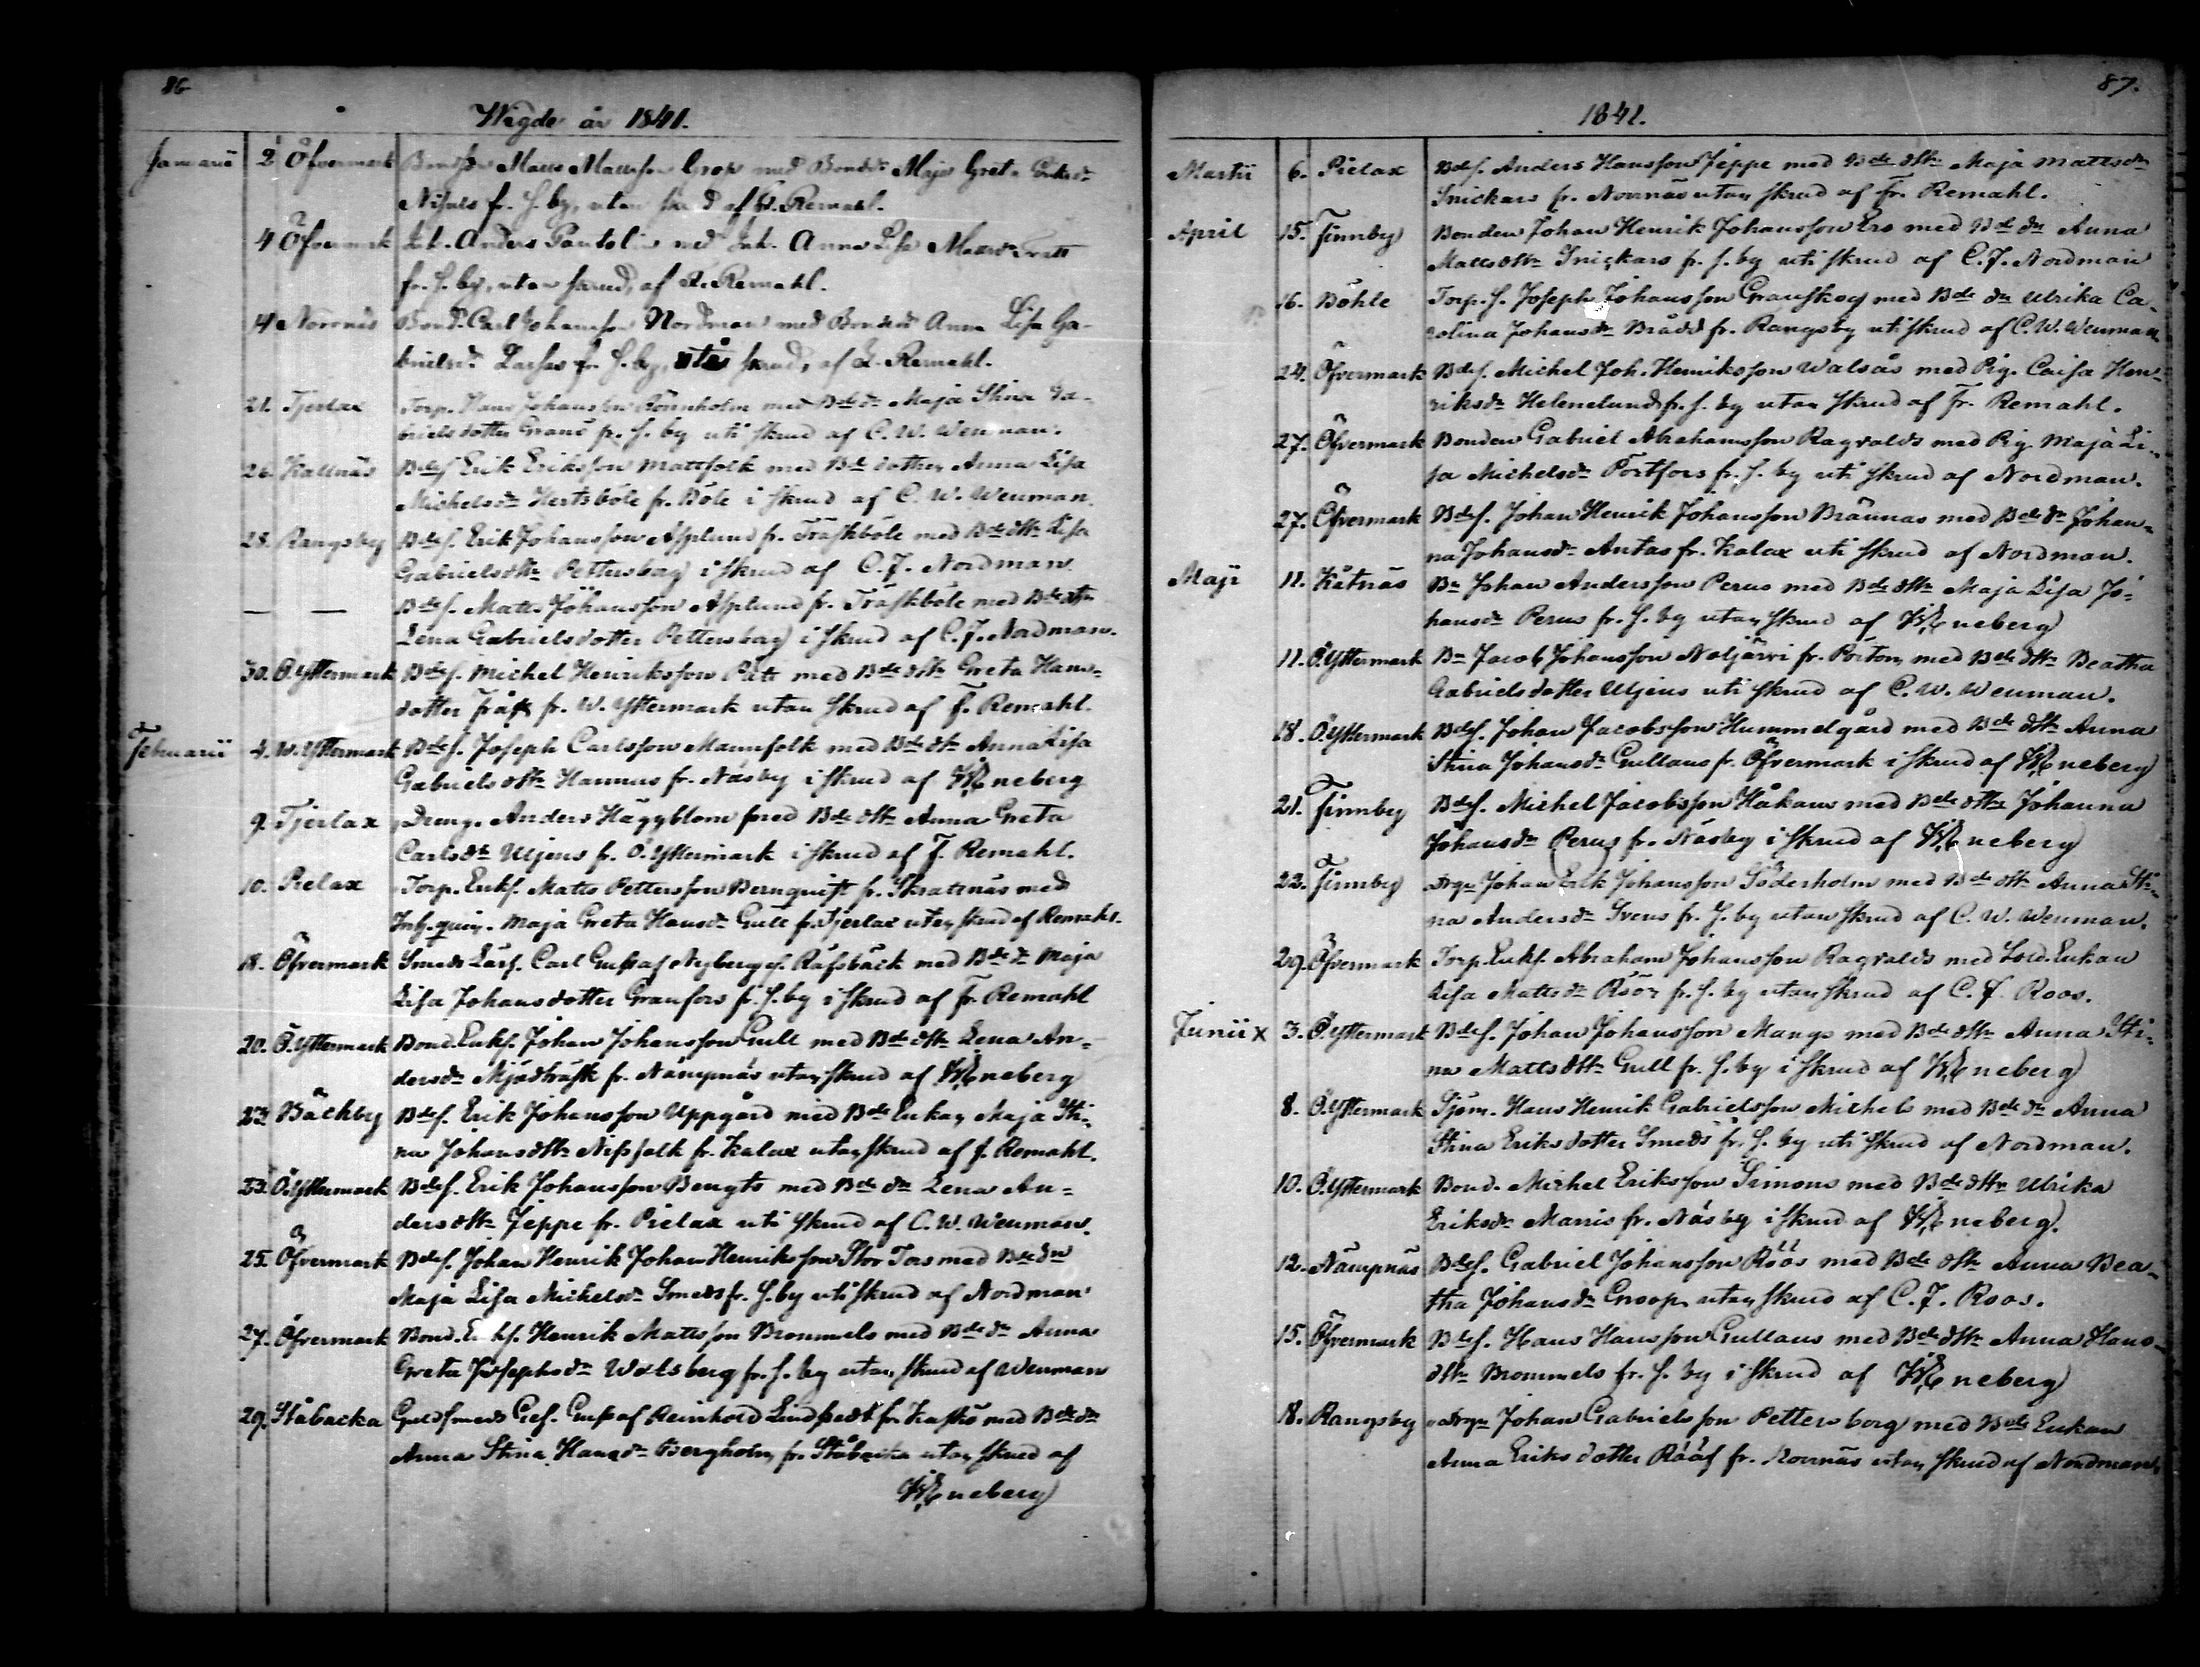 86
Wigde år 1841.
Januarii 2 Öfvermark Bondson Matts Mattsson Grop med Bondedr Maja Greta Eriksdr
fr. S. by, utan skrud af F. Remahl.
4 Öfvermark Inh. Anders Pantolin med Inh. Anna Lisa
fr. S. by, utan skrud, af F. Remahl.
14 Norrnäs Bond. Carl Johansson Nordman med Bondedr Anna Lisa Ga-
brielsdr Lassas fr. S. by, utan skrud, af F. Remahl.
21. Tjerlax Torp. Hans Johansson Rönnholm med Bde dr Maja Stina Ga-
brielsdotter Grans fr. S. by uti skrud af C. W. Wenman.
26. Kallnäs Bdes. Erik Eriksson Mattfolk med Bde dotter Anna Lisa
Michelsdr Hertsböle fr. Böle i skrud af C. W. Wenman.
28. Rangsby Bdes. Erik Johansson Asplund fr. Träskböle med Bde dttr Lisa
Gabrielsdttr Pettersborg i skrud af C. J. Nordman.
— — Bdes. Matts Johansson Asplund fr. Träskböle med Bde dttr
Lena Gabrielsdotter Pettersborg i skrud af C. J. Nordman.
30. Ö. Yttermark Bdes. Michel Henriksson Pått med Bde dttr Greta Hans-
dotter Träsk fr. W. Yttermark utan skrud af F. Remahl.
Februarii 4. W. Yttermark Bdes. Joseph Carlsson Mannfolk med Bde dtr Anna Lisa
Gabrielsdttr Hannus fr. Näsby i skrud af Weneberg
9. Tjerlax Dreng. Anders Häggblom med Bde dttr Anna Greta
Carlsdtr Uljens fr. Ö. Yttermark i skrud af F. Remahl.
10. Pielax Torp. Enkl. Matts Pettersson Bernquist fr. Skrattnäs med
Inh. quin. Maja Greta Hansdr Gull fr. Tjerlax utan skrud af Remahl.
18. Öfvermark Smeds Lärl. Carl Gustaf Nyberg fr. Räfsbäck med Bde dr Maja
Lisa Johansdotter Granfors fr. S. by i skrud af Fr. Remahl
20. Ö. Yttermark Bond. Enkl. Johan Johansson Gull med Bde dttr Lena An-
dersdr Mjödträsk fr. Nämpnäs utan skrud af Weneberg
23 Bäckby Bdes. Erik Johansson Uppgård med Bde Enkan Maja Sti-
na Johansdttr Nissfolk fr. Kalax utan skrud af F. Remahl.
23. Ö. Yttermark Bdes. Erik Johansson Bengts med Bde dr Lena An-
dersdttr Jeppe fr. Pielax uti skrud af C. W. Wenman.
25. Öfvermark Bdes. Johan Henrik Johan Henriksson Stor Tors med Bde dr
Maja Lisa Michelsdr Smeds fr. S. by uti skrud af Nordman
27. Öfvermark Bond. Enkl. Henrik Mattsson Brommels med Bde dr Anna
Greta Josephsdr Walsberg fr. S. by utan skrud af Wenman
29. Ståbacka Guldsmeds Ges. Gustaf Reinhold Lindstedt fr. Kaskö med Bde dr
Anna Stina Hansdr Bergholm fr. Ståbacka utan skrud af
Weneberg
87.
1841.
Martii 6. Pielax Bdes. Anders Hansson Jeppe med Bde dttr Maja Mattsdr
Snickars fr. Norrnäs utan skrud af Fr. Remahl.
April 15. Finnby Bonden Johan Henrik Johansson Ers med Bde dr Anna
Mattsdttr Snickars fr. S. by uti skrud af C. J. Nordman
16. Böhle Torp. S. Joseph Johansson Granskog med Bde dr Ulrika Ca-
rolina Johansdr Brådd fr. Rangsby uti skrud af C. W. Wenman.
24. Öfvermark Bdes. Michel Joh. Henriksson Walsås med Pig. Caisa Hen-
riksdr Helenelund fr. S. by utan skrud af Fr. Remahl.
27. Öfvermark Bonden Gabriel Abrahamsson Ragvalds med Pig. Maja Li-
sa Michelsdr Fortfors fr. S. by uti skrud af Nordman.
27. Öfvermark Bdes. Johan Henrik Johansson Brännas med Bde dr Johan-
na Johansdr Antas fr. Kalax uti skrud af Nordman.
Maji 11. Kåtnäs Bn Johan Andersson Perus med Bde dttr Maja Lisa Jo-
hansdr Perus fr. S. by utan skrud af Weneberg
11. Ö. Yttermark Bn Jacob Johansson Naljärvi fr. Pörtom med Bde dttr Beatha
Gabrielsdotter Uljens uti skrud af C. W. Wenman.
18. Ö. Yttermark Bdes. Johan Jacobsson Hummelgård med Bde dttr Anna
Stina Johansdr Gullans fr. Öfvermark i skrud af Weneberg
21. Finnby Bdes. Michel Jacobsson Håkans med Bde dttr Johanna
Johansdr Perus fr. Näsby i skrud af Weneberg
22. Finnby Drgn Johan Erik Johansson Söderholm med Bde dttr Anna Sti-
na Andersdr Svens fr. S. by utan skrud af C. W. Wenman.
29. Öfvermark Torp. Enkl. Abraham Johansson Ragvalds med Sold. Enkan
Lisa Mattsdr Röör fr. S. by utan skrud af C. J. Roos.
Junii x 3. Ö. Yttermark Bdes. Johan Johansson Mangs med Bde dttr Anna Sti-
na Mattsdttr Gull fr. S. by i skrud af Weneberg
8. Ö. Yttermark Sjöm. Hans Henrik Gabrielsson Michels med Bde dr Anna
Stina Eriksdotter Smeds fr. S. by uti skrud af Nordman.
10. Ö. Yttermark Bond. Michel Eriksson Simons med Bde dttr Ulrika
Eriksdr Manis fr. Näsby i skrud af Weneberg.
12. Nämpnäs Bdes. Gabriel Johansson Röös med Bde dttr Anna Bea-
tha Johansdr Groop utan skrud af C. J. Roos.
15. Öfvermark Bdes. Hans Hansson Gullans med Bde dttr Anna Hans-
dttr Brommels fr. S. by i skrud af Weneberg
18. Rangsby Drgn Johan Gabrielsson Pettersborg med Bde Enkan
Anna Eriksdotter Rääf fr. Norrnäs utan skrud af Nordman.